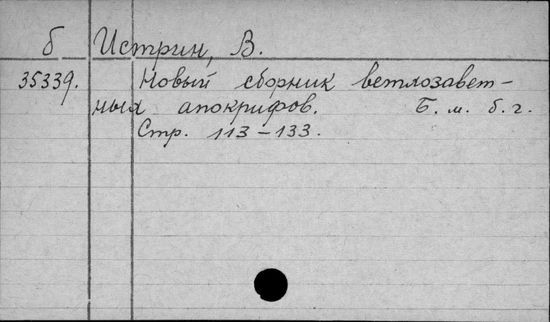 б Истрин, В.
35339. Новый сборник ветхозавет-
ных апокрифов. Б. м. б. г.
Стр. 113-133.